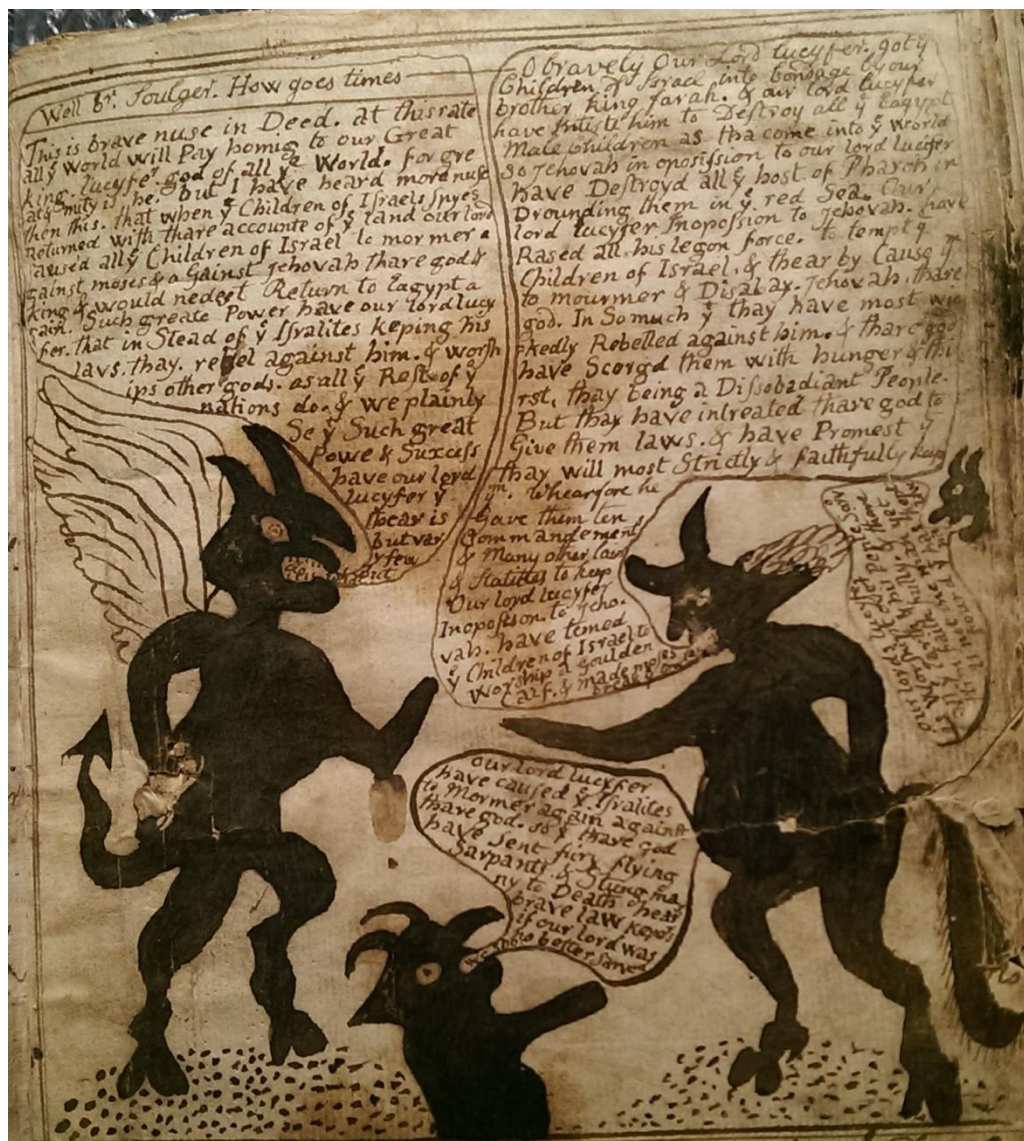 Well br. Foulger. How goes times
This is brave nuse in Deed. at this rate
all ẏ World will Pay homig to our Great
king. lucyfer god of all ẏe World. for gre
aty mity is he. but I have heard more nuse
then this. that when ẏ Children of Israels Spyes
returned with thare accounte of ẏ land our lord
caused all ẏ Children of Israel to mormer a
gainst moses & a Gainst Jehovah thare god &
king & would nedest Return to Eagypt a
gain. Such greate Power have our lord lucy
fer. that in Stead of ẏ Isralites keping his
laws. thay. rebel against him. & worsh
ips other gods. as all ẏ Rest of ẏ
nations do. & we plainly
Se ẏ Such great
Powe & Suxcess
have our lord
lucyfer ẏ
thear is
but var
y few
O bravely Our Lord lucyfer. got ẏ
Children of Israel into bondage by our
brother king farah. & our lord lucyfer
have Intiste him to Destroy all ẏ Eagypt
Male Children as tha come into ẏ World
So Jehovah in oposission to our lord lucifer
have Destroyd all ẏ host of Pharoh in
Drounding them in ẏ red Sea. Our
lord lucyfer Inopossion to Jehovah. have
Rased all his legon force. to tempt ẏ
Children of Israel. & thear by Cause ym
to mourmer & Disabay. Jehovah. thare
god. In So much ẏ thay have most wi
ckedly Rebelled against him. & thare god
have Scorgd them with hunger & thi
rst, thay being a Dissobadiant People.
But thay have intreated thare god to
Give them laws. & have Promest ẏ
thay will most Strictly & faithfully keep
ym. Whearfore he
Gave them ten
Commandements
& Many other laws
& Statutes to keep
Our lord lucyfer
Inoposson. to Jeho.
vah. have temed
ẏ Children of Israel to
Worship a Goulden
Calf. & made moses
break
our lord lucyfer
have caused ẏ Isralites
to Mormer again against
thare god. so ẏ thare god
have Sent firy flying
Sarpants & Stung ma
ny to Death O hear
brave law kepers
if our lord was
no better Sarved